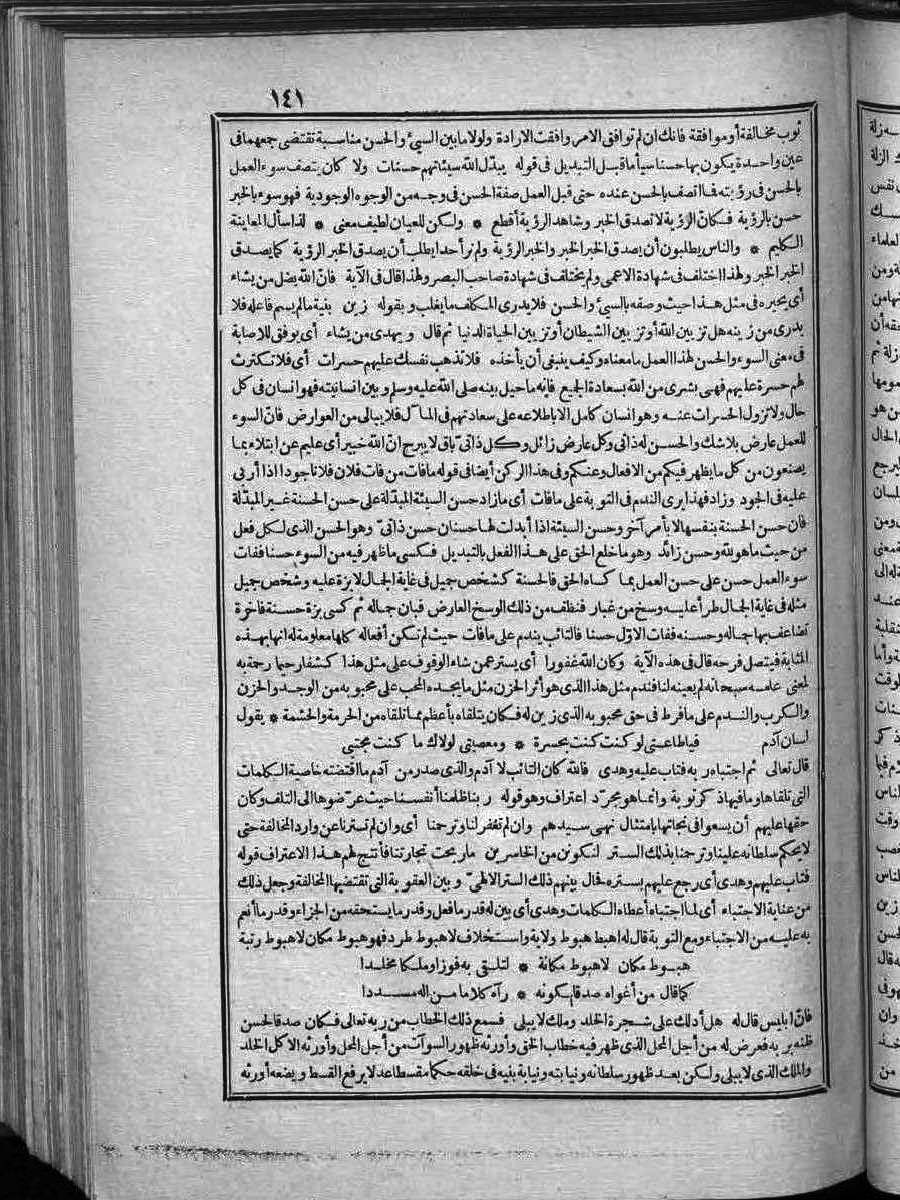 ١٤١
ثوب مخالفة أو موافقة فانك ان لم توافق الامر وافقت الارادة ولولا ما بين السيئ والحسن مناسبة تقتضى جمعهما فى
عين واحدة يكون بها حسنا سيأ ما قبل التبديل فى قوله يبدّل الله سيئاتهم حسنات ولا كان يتصف سوء العمل
بالحسن فى رؤيته فما اتصف بالحسن عنده حتى قبل العمل صفة الحسن فى وجه من الوجوه الوجودية فهو سوء بالخبر
حسن بالرؤية فكانّ الرؤية لا تصدق الخبر وشاهد الرؤية أقطع * ولكن للعيان لطيف معنى * لذا سأل المعاينة
الكليم * والناس يطلبون أن يصدق الخبر الخبر والخبر الرؤية ولم نر أحدا يطلب أن يصدق الخبر الرؤية كما يصدق
الخبر الخبر ولهذا اختلف فى شهادة الاعمى ولم يختلف فى شهادة صاحب البصر ولهذا قال فى الآية فانّ الله يضل من يشاء
أى يحيره فى مثل هذا حيث وصفه بالسيئ والحسن فلا يدرى المكلف ما يغلب وبقوله زين بنية ما لم يسم فاعله فلا
يدرى من زينه هل تزيين الله أو تزيين الشيطان أو تزيين الحياة الدنيا ثم قال ويهدى من يشاء أى يوفق للاصابة
فى معنى السوء والحسن لهذا العمل ما معناه وكيف ينبغى أن يأخذه فلا تذهب نفسك عليهم حسرات أى فلا تكترث
لهم حسرة عليهم فهى بشرى من الله بسعادة الجميع فانه ما حيل بينه صلى الله عليه وسلم وبين انسانيته فهو انسان فى كل
حال ولا تزول الحسرات عنه وهو انسان كامل الا باطلاعه على سعادتهم فى المآل فلا يبالى من العوارض فانّ السوء
للعمل عارض بلا شك والحسن له ذاتى وكل عارض زائل وكل ذاتىّ باق لا يبرح انّ الله خبير أى عليم عن ابتلاء بما
يصنعون من كل ما يظهر فيكم من الافعال وعنكم وفى هذا الركن أيضا فى قوله ما فات من فات فلان فلانا جودا اذا أربى
عليه فى الجود وزاد فهذا يرى الندم فى التوبة على ما فات أى ما زاد حسن السيئة المبدّلة على حسن الحسنة غير المبدّلة
فان حسن الحسنة بنفسها لا بأمر آخر وحسن السيئة اذا أبدلت لها حسنان حسن ذاتىّ وهو الحسن الذى لكل فعل
من حيث ما هو لله وحسن زائد وهو ما خلع الحق على هذا الفعل بالتبديل فكسى ما ظهر فيه من السوء حسنا ففات
سوء العمل حسن على حسن العمل بما كساه الحق فالحسنة كشخص جميل فى غاية الجمال لا بزة عليه وشخص جميل
مثله فى غاية الجمال طرأ عليه وسخ من غبار فنظف من ذلك الوسخ العارض فبان جماله ثم كسى بزة حسنة فاخرة
تضاعف بها جماله وحسنه ففات الاوّل حسنا فالتائب يندم على ما فات حيث لم تكن أفعاله كلها معلومة له انها بهذه
المثابة فيتصل فرحه قال فى هذه الآية وكان الله غفورا أى يستر عمن شاء الوقوف على مثل هذا كشفا رحيما رحمة به
لمعنى علمه سبحانه لم يعينه لنا فندم مثل هذا الذى هو أثر الحزن مثل ما يجده المحب على محبوبه من الوجد والحزن
والكرب والندم على ما فرط فى حق محبوبه الذى زين له فكان يتلقاه بأعظم مما تلقاه من الحرمة والحشمة * يقول
لسان آدم فيا طاعتى لو كنت كنت بحسرة * ومعصيتى لولاك ما كنت مجتبى
قال تعالى ثم اجتباه ربه فتاب عليه وهدى فالله كان التائب لا آدم والذى صدر من آدم ما اقتضته خاصية الكلمات
التى تلقاها وما فيها ذكر توبة وانما هو مجرّد اعتراف وهو قوله ربنا ظلمنا أنفسنا حيث عرّضوها الى التلف وكان
حقها عليهم أن يسعوا فى نجاتها بامتثال نهى سيدهم وان لم تغفر لنا وترحمنا أى وان لم تسترنا عن وارد المخالفة حتى
لا يحكم سلطانه علينا وترحمنا بذلك الستر لنكونن من الخاسرين ما ربحت تجارتنا فأنتج لهم هذا الاعتراف قوله
فتاب عليهم وهدى أى رجع عليهم بستره فحال بينهم ذلك الستر الالهىّ وبين العقوبة التى تقتضيها المخالفة وجعل ذلك
من عناية الاجتباء أى لما اجتباه أعطاه الكلمات وهدى أى بين له قدر ما فعل وقدر ما يستحقه من الجزاء وقدر ما أنعم
به عليه من الاجتباء ومع التوبة قال له اهبط هبوط ولاية واستخلاف لا هبوط طرد فهو هبوط مكان لا هبوط رتبة
هبوط مكان لا هبوط مكانة * لتلقى به فوزا وملكا مخلدا
كما قال من أغواه صدقا بكونه * رآه كلاما من اله مسددا
فانّ ابليس قال له هل أدلك على شجرة الخلد وملك لا يبلى فسمع ذلك الخطاب من ربه تعالى فكان صدقا لحسن
ظنه بربه فعرض له من أجل المحل الذى ظهر فيه خطاب الحق وأورثه ظهور السوآت من أجل المحل وأورثه الاكل الخلد
والملك الذى لا يبلى ولكن بعد ظهور سلطانه ونيابته ونيابة بنيه فى خلقه حكما مقسطا عدلا يرفع القسط ويضعه أورثه